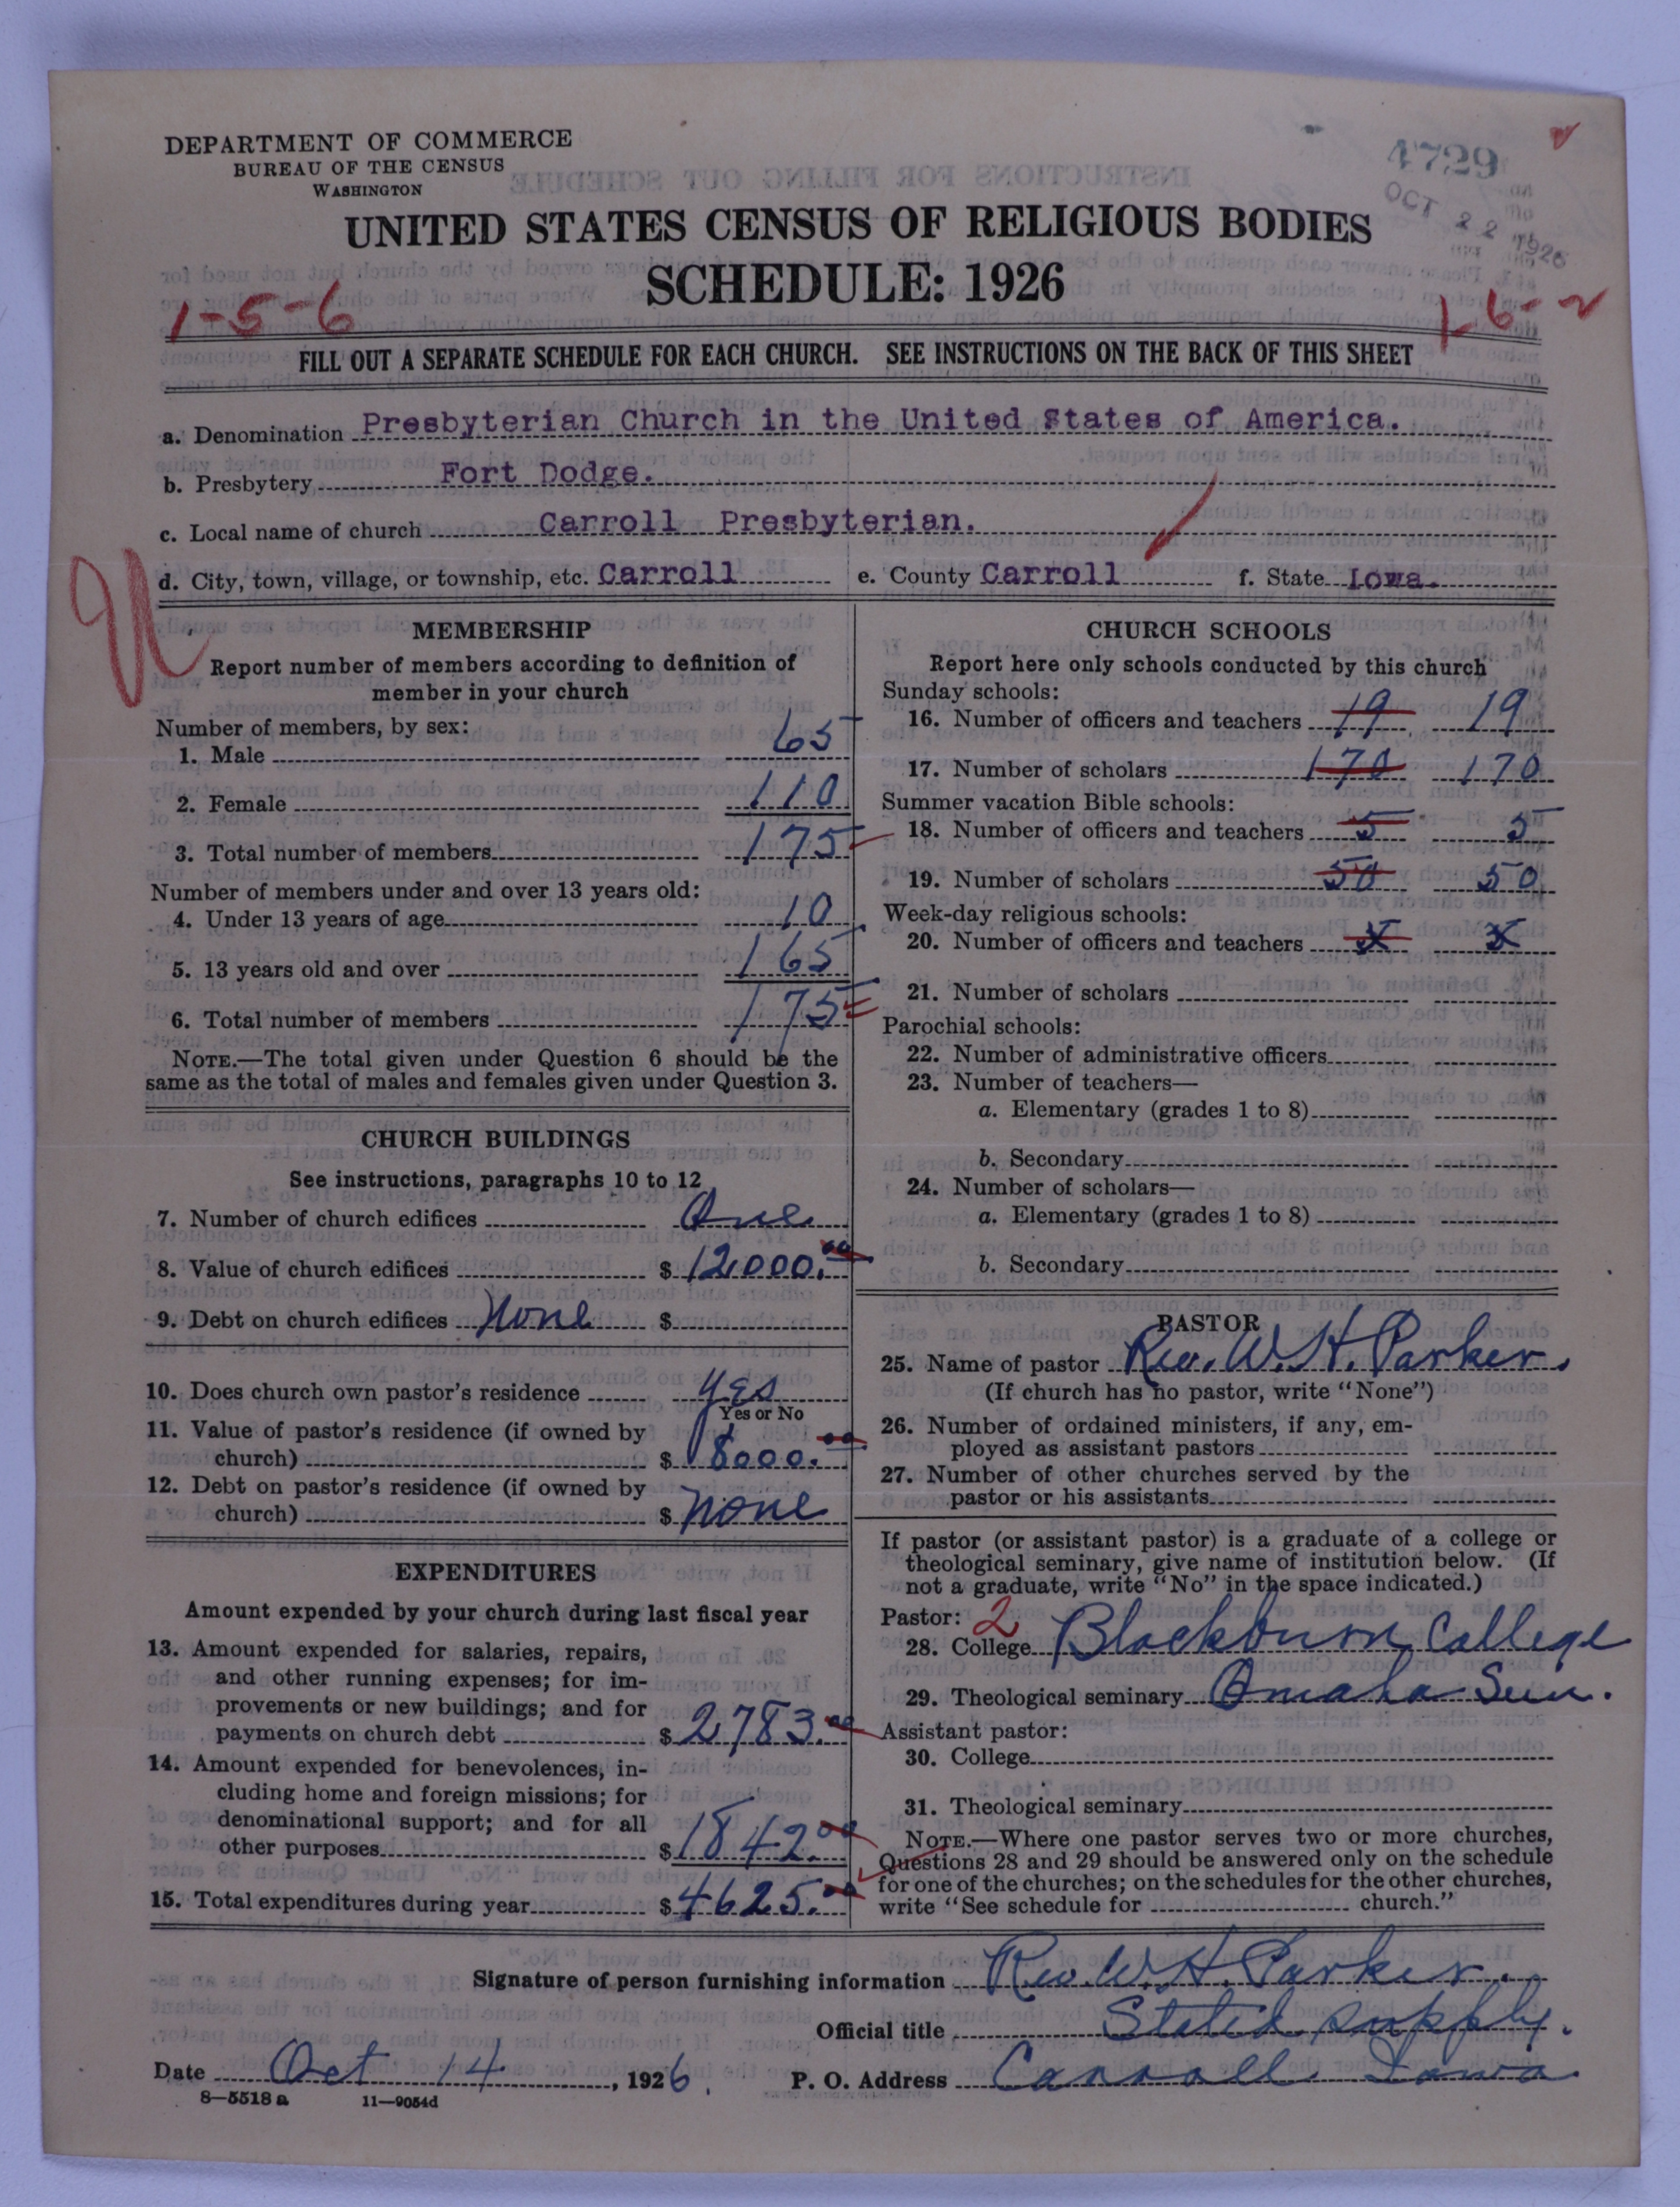 DEPARTMENT OF COMMERCE
BUREAU OF THE CENSUS
WASHINGTON
4729
OCT 22 1926
UNITED STATES CENSUS OF RELIGIOUS BODIES
SCHEDULE: 1926
1-5-6
FILL OUT A SEPARATE SCHEDULE FOR EACH CHURCH. SEE INSTRUCTIONS ON THE BACK OF THIS SHEET
a. Denomination Presbyterian Church in the United States of America.
b. Presbytery Fort Dodge.
c. Local name of church Carroll Presbyterian.
d. City, town, village, or township, etc. Carroll e. County Carroll f. State Iowa.
MEMBERSHIP
Report number of members according to definition of
member in your church
Number of members, by sex:
1. Male 65
2. Female 110
3. Total number of members 175
Number of members under and over 13 years old:
4. Under 13 years of age 10
5. 13 years old and over 165
6. Total number of members 175
NOTE.—The total given under Question 6 should be the
same as the total of males and females given under Question 3.
CHURCH BUILDINGS
See instructions, paragraphs 10 to 12
7. Number of church edifices One
8. Value of church edifices $ 12000.00
9. Debt on church edifices None $
10. Does church own pastor's residence Yes
Yes or No
11. Value of pastor's residence (if owned by
church) $ 8000.00
12. Debt on pastor's residence (if owned by
church) $ None
EXPENDITURES
Amount expended by your church during last fiscal year
13. Amount expended for salaries, repairs,
and other running expenses; for im-
provements or new buildings; and for
payments on church debt $ 2783.00
14. Amount expended for benevolences, in-
cluding home and foreign missions; for
denominational support; and for all
other purposes $ 1842.00
15. Total expenditures during year $ 4625.00
CHURCH SCHOOLS
Report here only schools conducted by this church
Sunday schools:
16. Number of officers and teachers 19 19
17. Number of scholars 170 170
Summer vacation Bible schools:
18. Number of officers and teachers 5 5
19. Number of scholars 50 50
Week-day religious schools:
20. Number of officers and teachers
21. Number of scholars
Parochial schools:
22. Number of administrative officers
23. Number of teachers—
a. Elementary (grades 1 to 8)
b. Secondary
24. Number of scholars—
a. Elementary (grades 1 to 8)
b. Secondary
PASTOR
25. Name of pastor Rev. W. H. Parker.
(If church has no pastor, write "None")
26. Number of ordained ministers, if any, em-
ployed as assistant pastors
27. Number of other churches served by the
pastor or his assistants
If pastor (or assistant pastor) is a graduate of a college or
theological seminary, give name of institution below. (If
not a graduate, write "No" in the space indicated.)
Pastor: 2
28. College Blackburn College
29. Theological seminary Omaha Sem.
Assistant pastor:
30. College
31. Theological seminary
NOTE.—Where one pastor serves two or more churches,
Questions 28 and 29 should be answered only on the schedule
for one of the churches; on the schedules for the other churches,
write "See schedule for church."
Signature of person furnishing information Rev. W. H. Parker.
Official title Stated supply.
Date Oct 14, 1926. P. O. Address Carroll Iowa
8—5518 a 11—9054d